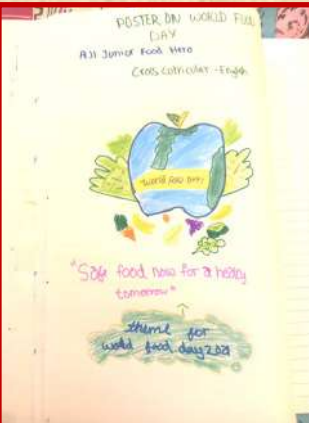 POSTER ON WORLD FOOD
DAY
Junior Food Hero
Cross Curricular - English
World Food Day
"Safe food now for a healthy
tomorrow"
theme for
world food day 2021